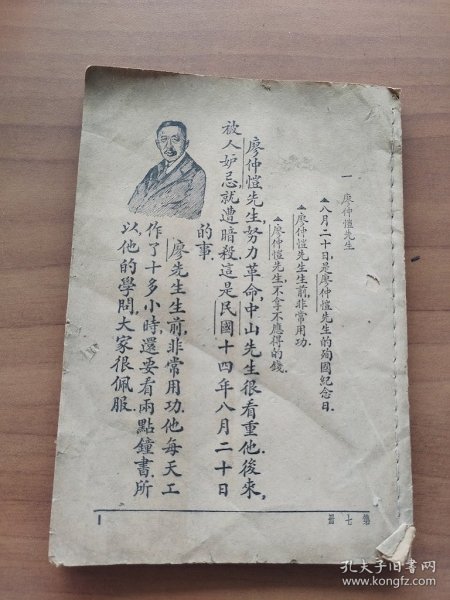 一 廖仲愷先生
八月二十日是廖仲愷先生的殉國紀念日.
廖仲愷先生生前,非常用功.
廖仲愷先生,不拿不應得的錢.
廖仲愷先生,努力革命,中山先生很看重他.後來,
被人妒忌,就遭暗殺.這是民國十四年八月二十日
的事.
廖先生生前,非常用功.他每天工
作了十多小時,還要看兩點鐘書.所
以,他的學問,大家很佩服.
第七册
1
孔夫子旧书网
www.kongfz.com